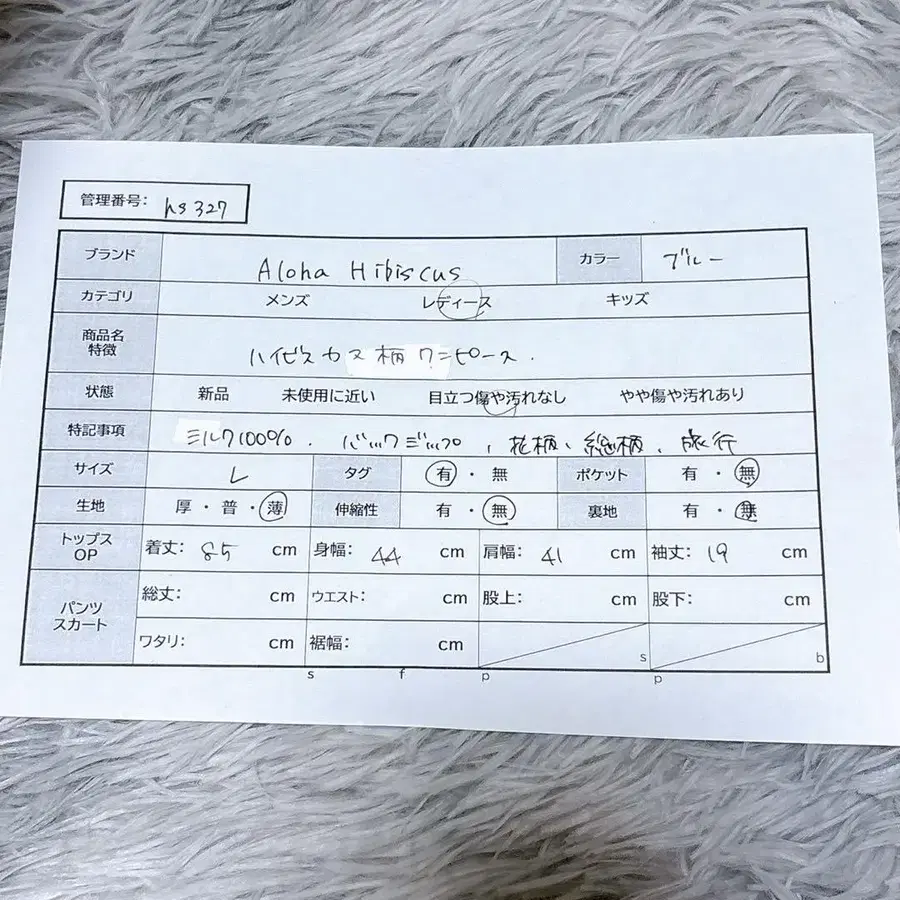 管理番号: hs327
ブランド Aloha Hibiscus カラー ブルー
カテゴリ メンズ レディース キッズ
商品名 特徴 ハイビスカス柄ワンピース.
状態 新品 未使用に近い 目立つ傷や汚れなし やや傷や汚れあり
特記事項 ミルク100%. バックジップ, 花柄、総柄、旅行
サイズ L タグ 有・無 ポケット 有・無
生地 厚・普・薄 伸縮性 有・無 裏地 有・無
トップス OP 着丈: 85 cm 身幅: 44 cm 肩幅: 41 cm 袖丈: 19 cm
パンツ スカート 総丈: cm ウエスト: cm 股上: cm 股下: cm
ワタリ: cm 裾幅: cm s b
s f p p